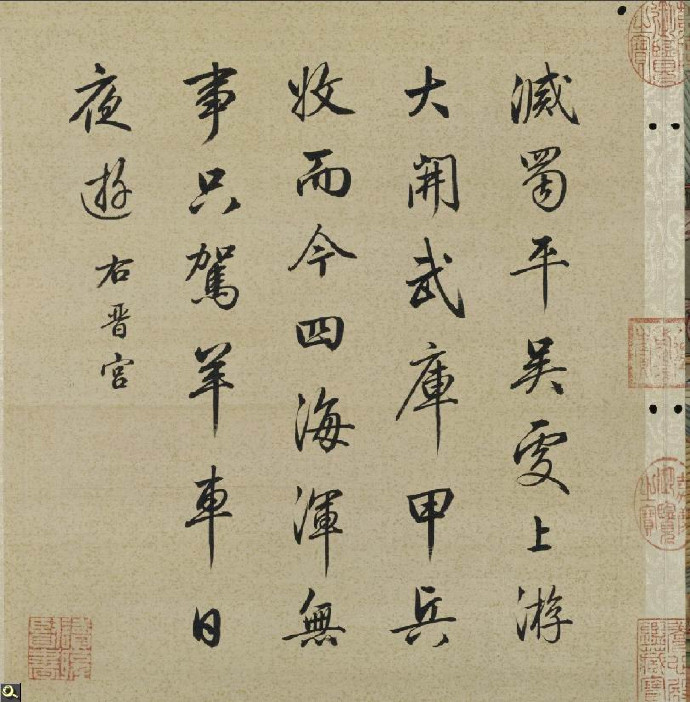 滅蜀平吳上游
大開武庫甲兵
收而今四海渾無
事只駕羊車日
夜遊 右晋宮